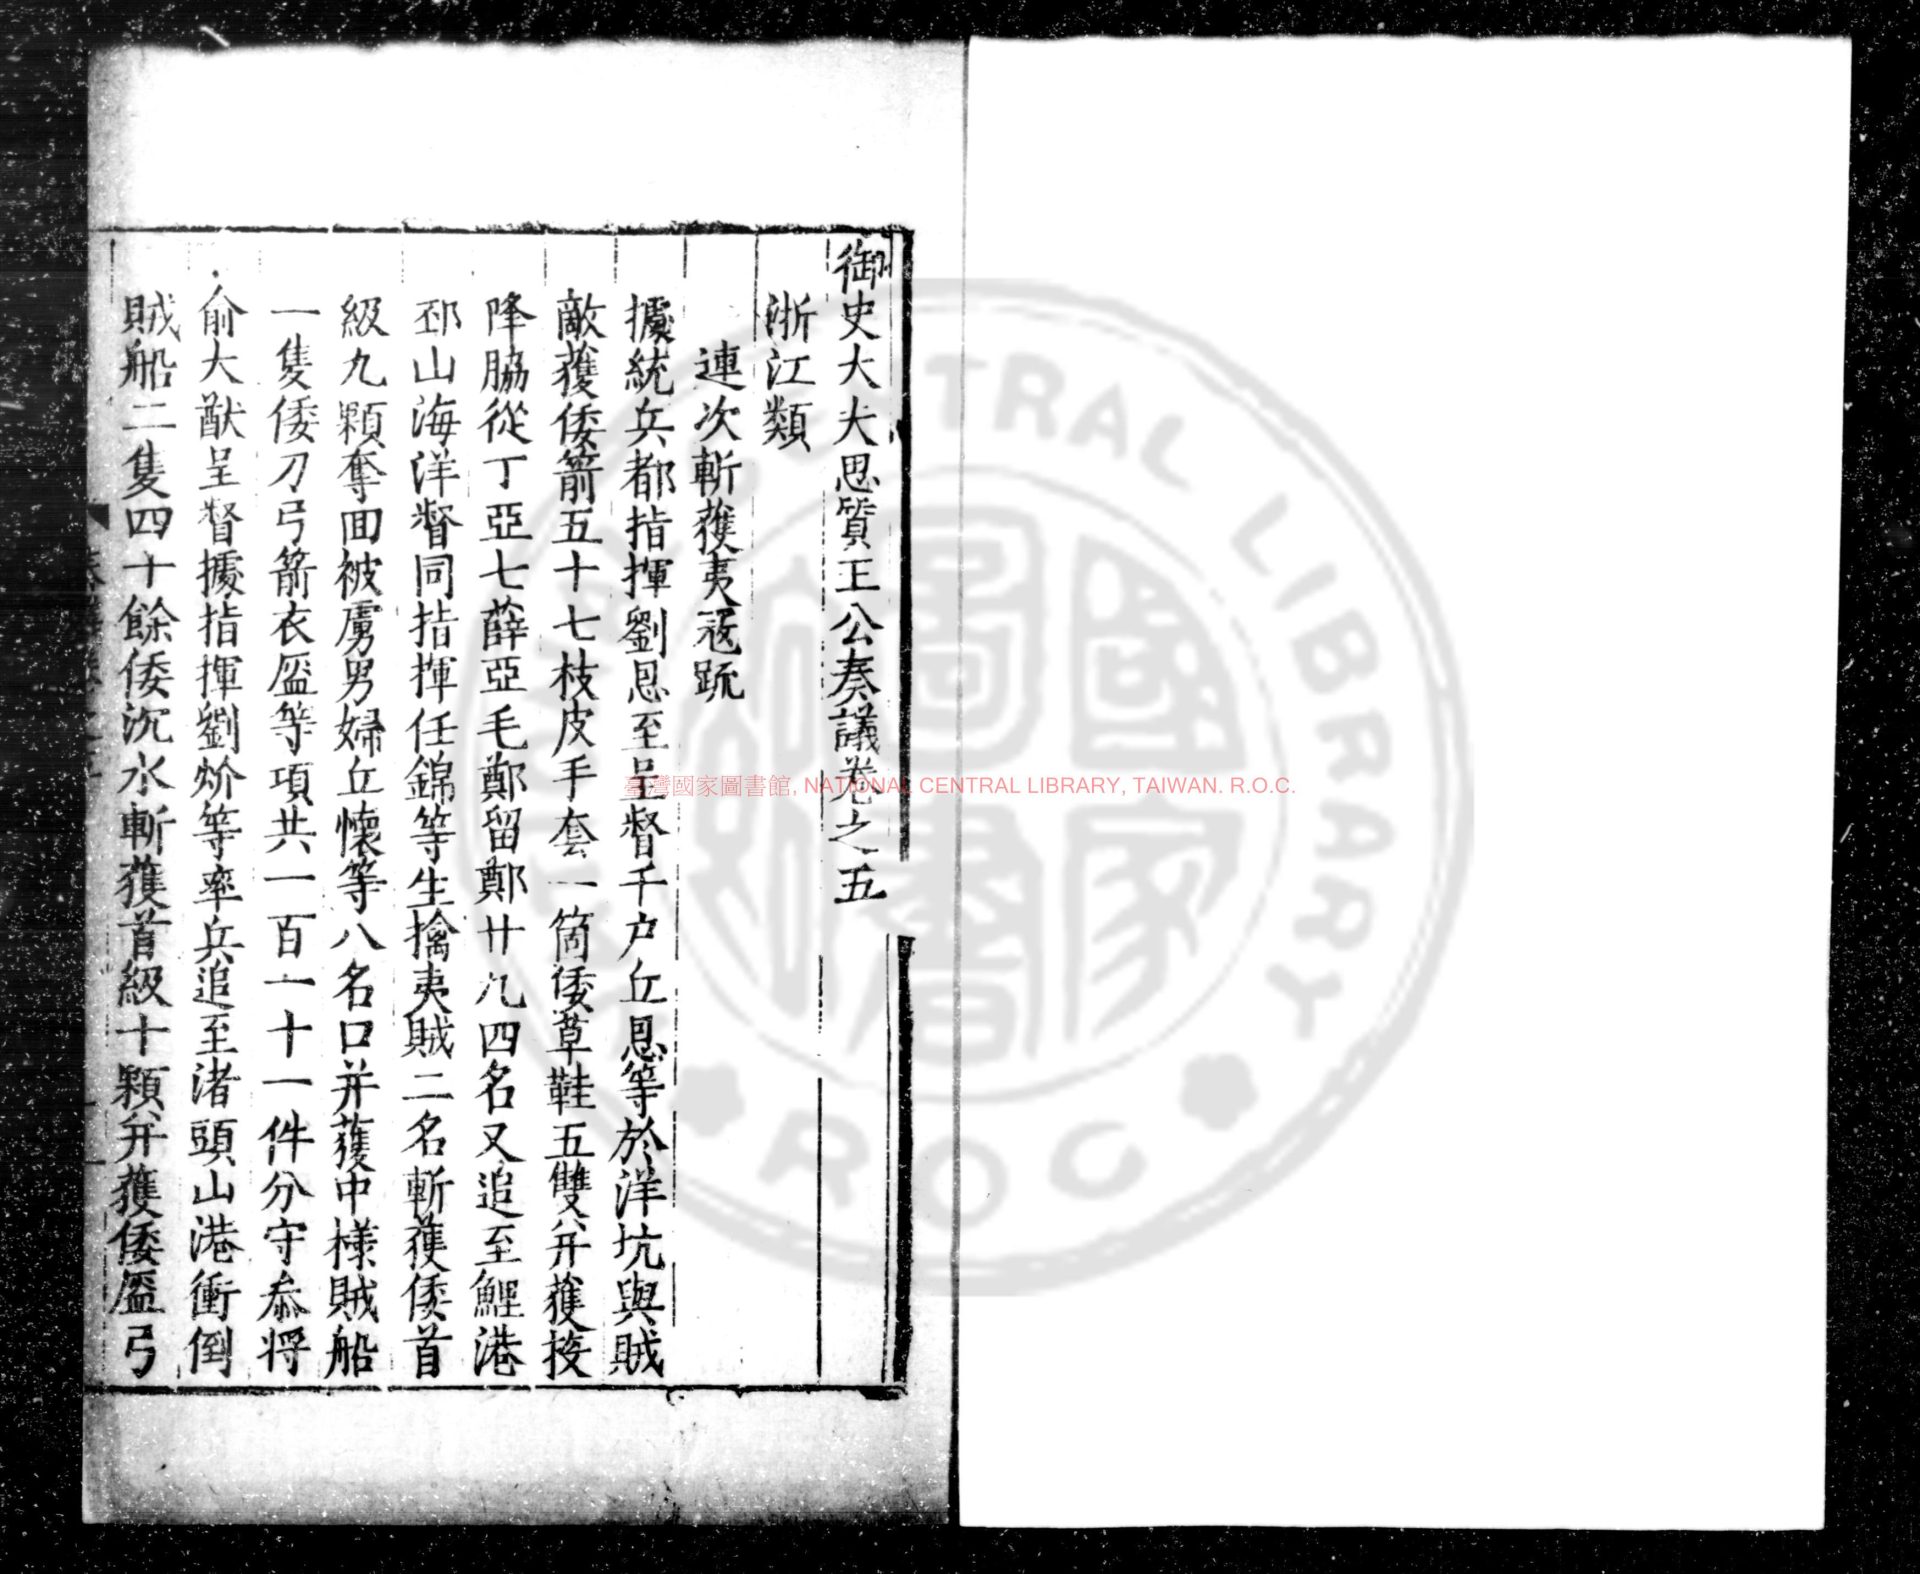 御史大夫思質王公奏議卷之五
浙江類
連次斬獲夷寇疏
據統兵都指揮劉恩至呈督千户丘恩等於洋坑與賊
敵獲倭箭五十七枝皮手套一箇倭草鞋五雙并獲接
降脇從丁亞七薛亞毛鄭留鄭廿九四名又追至鯉港
邳山海洋督同指揮任錦等生擒夷賊二名斬獲倭首
級九顆奪回被虜男婦丘懷等八名口并獲中様賊船
一隻倭刀弓箭衣盔等項共一百一十一件分守叅将
俞大猷呈督據指揮劉炌等率兵追至渚頭山港衝倒
賊船二隻四十餘倭沉水斬獲首級十顆并獲倭盔弓
臺灣國家圖書館, NATIONAL CENTRAL LIBRARY, TAIWAN. R.O.C.
NATIONAL CENTRAL LIBRARY
ROC
國家圖書館